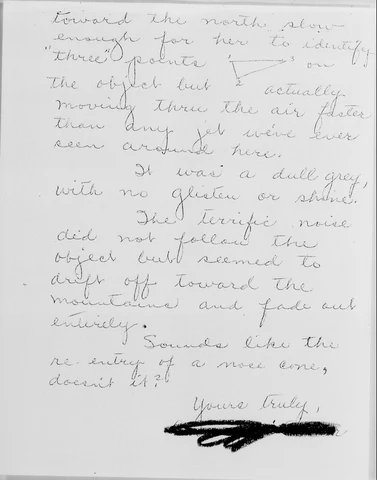 toward the north slow
enough for her to identify
"three" points 1 2 3 on
the object but actually
moving thru the air faster
than any jet we've ever
seen around here.
It was a dull grey,
with no glisten or shine.
The terrific noise
did not follow the
object but seemed to
drift off toward the
mountains and fade out
entirely.
Sounds like the
re-entry of a nose cone,
doesn't it?
Yours truly,